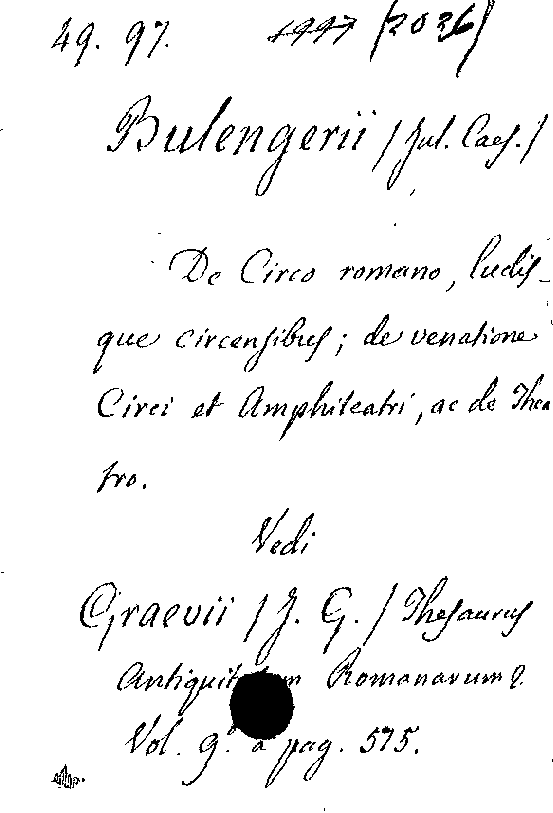 49. 97. 1997 (2036)
Bulengerii (Jul. Caes.)
De Circo romano, ludis-
que circensibus; de venatione
Circi et Amphiteatri, ac de Thea
tro.
Vedi
Graevii (J. G.) Thesaurus
Romanarum
Vol. 9.° a pag. 575.